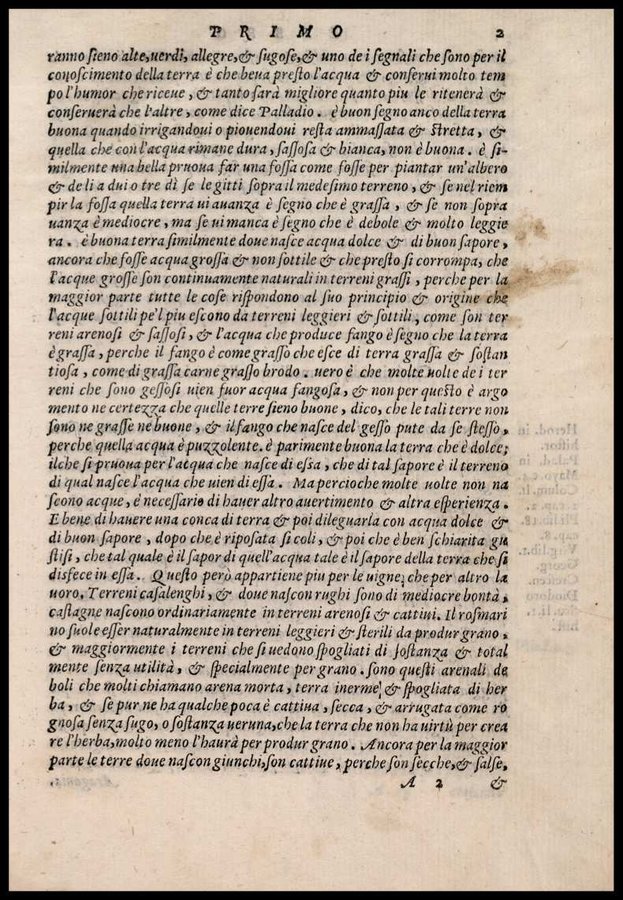 PRIMO 2
ranno sieno alte, uerdi, allegre, & sugose, & uno de i segnali che sono per il
conoscimento della terra è che beua presto l'acqua & conserui molto tem
po l'humor che riceue, & tanto sarà migliore quanto piu le ritenerà &
conseruerà che l'altre, come dice Palladio. è buon segno anco della terra
buona quando irrigandoui o piouendoui resta ammassata & stretta, &
quella che con l'acqua rimane dura, sassosa & bianca, non è buona. è si-
milmente una bella pruoua far una fossa come fosse per piantar un'albero
& de li a dui o tre dì se le gitti sopra il medesimo terreno, & se nel riem
pir la fossa quella terra ui auanza è segno che è grassa, & se non sopra
uanza è mediocre, ma se ui manca è segno che è debole & molto leggie
ra. è buona terra similmente doue nasce acqua dolce & di buon sapore,
ancora che fosse acqua grossa & non sottile & che presto si corrompa, che
l'acque grosse son continuamente naturali in terreni grassi, perche per la
maggior parte tutte le cose rispondono al suo principio & origine che
l'acque sottili pe'l piu escono da terreni leggieri & sottili, come son ter
reni arenosi & sassosi, & l'acqua che produce fango è segno che la terra
è grassa, perche il fango è come grasso che esce di terra grassa & sostan
tiosa, come di grassa carne grasso brodo. uero è che molte uolte de i ter
reni che sono gessosi uien fuor acqua fangosa, & non per questo è argo
mento ne certezza che quelle terre sieno buone, dico, che le tali terre non
sono ne grasse ne buone, & il fango che nasce del gesso pute da se stesso,
perche quella acqua è puzzolente. è parimente buona la terra che è dolce;
ilche si pruoua per l'acqua che nasce di essa, che di tal sapore è il terreno
di qual nasce l'acqua che uien di essa. Ma percioche molte uolte non na
scono acque, è necessario di hauer altro auertimento & altra esperienza.
E bene di hauere una conca di terra & poi dileguarla con acqua dolce &
di buon sapore, dopo che è riposata si coli, & poi che è ben schiarita gu
stisi, che tal quale è il sapor di quell'acqua tale è il sapore della terra che si
disfece in essa. Questo però appartiene piu per le uigne, che per altro la
uoro. Terreni casalenghi, & doue nascon rughi sono di mediocre bontà,
castagne nascono ordinariamente in terreni arenosi & cattiui. Il rosmari
no suole esser naturalmente in terreni leggieri & sterili da produr grano,
& maggiormente i terreni che si uedono spogliati di sostanza & total
mente senza utilità, & specialmente per grano. sono questi arenali de
boli che molti chiamano arena morta, terra inerme, & spogliata di her
ba, & se pur ne ha qualche poca è cattiua, secca, & arrugata come ro
gnosa senza sugo, o sostanza ueruna, che la terra che non ha uirtù per crea
re l'herba, molto meno l'haurà per produr grano. Ancora per la maggior
parte le terre doue nascon giunchi, son cattiue, perche son secche, & salse,
A 2 &